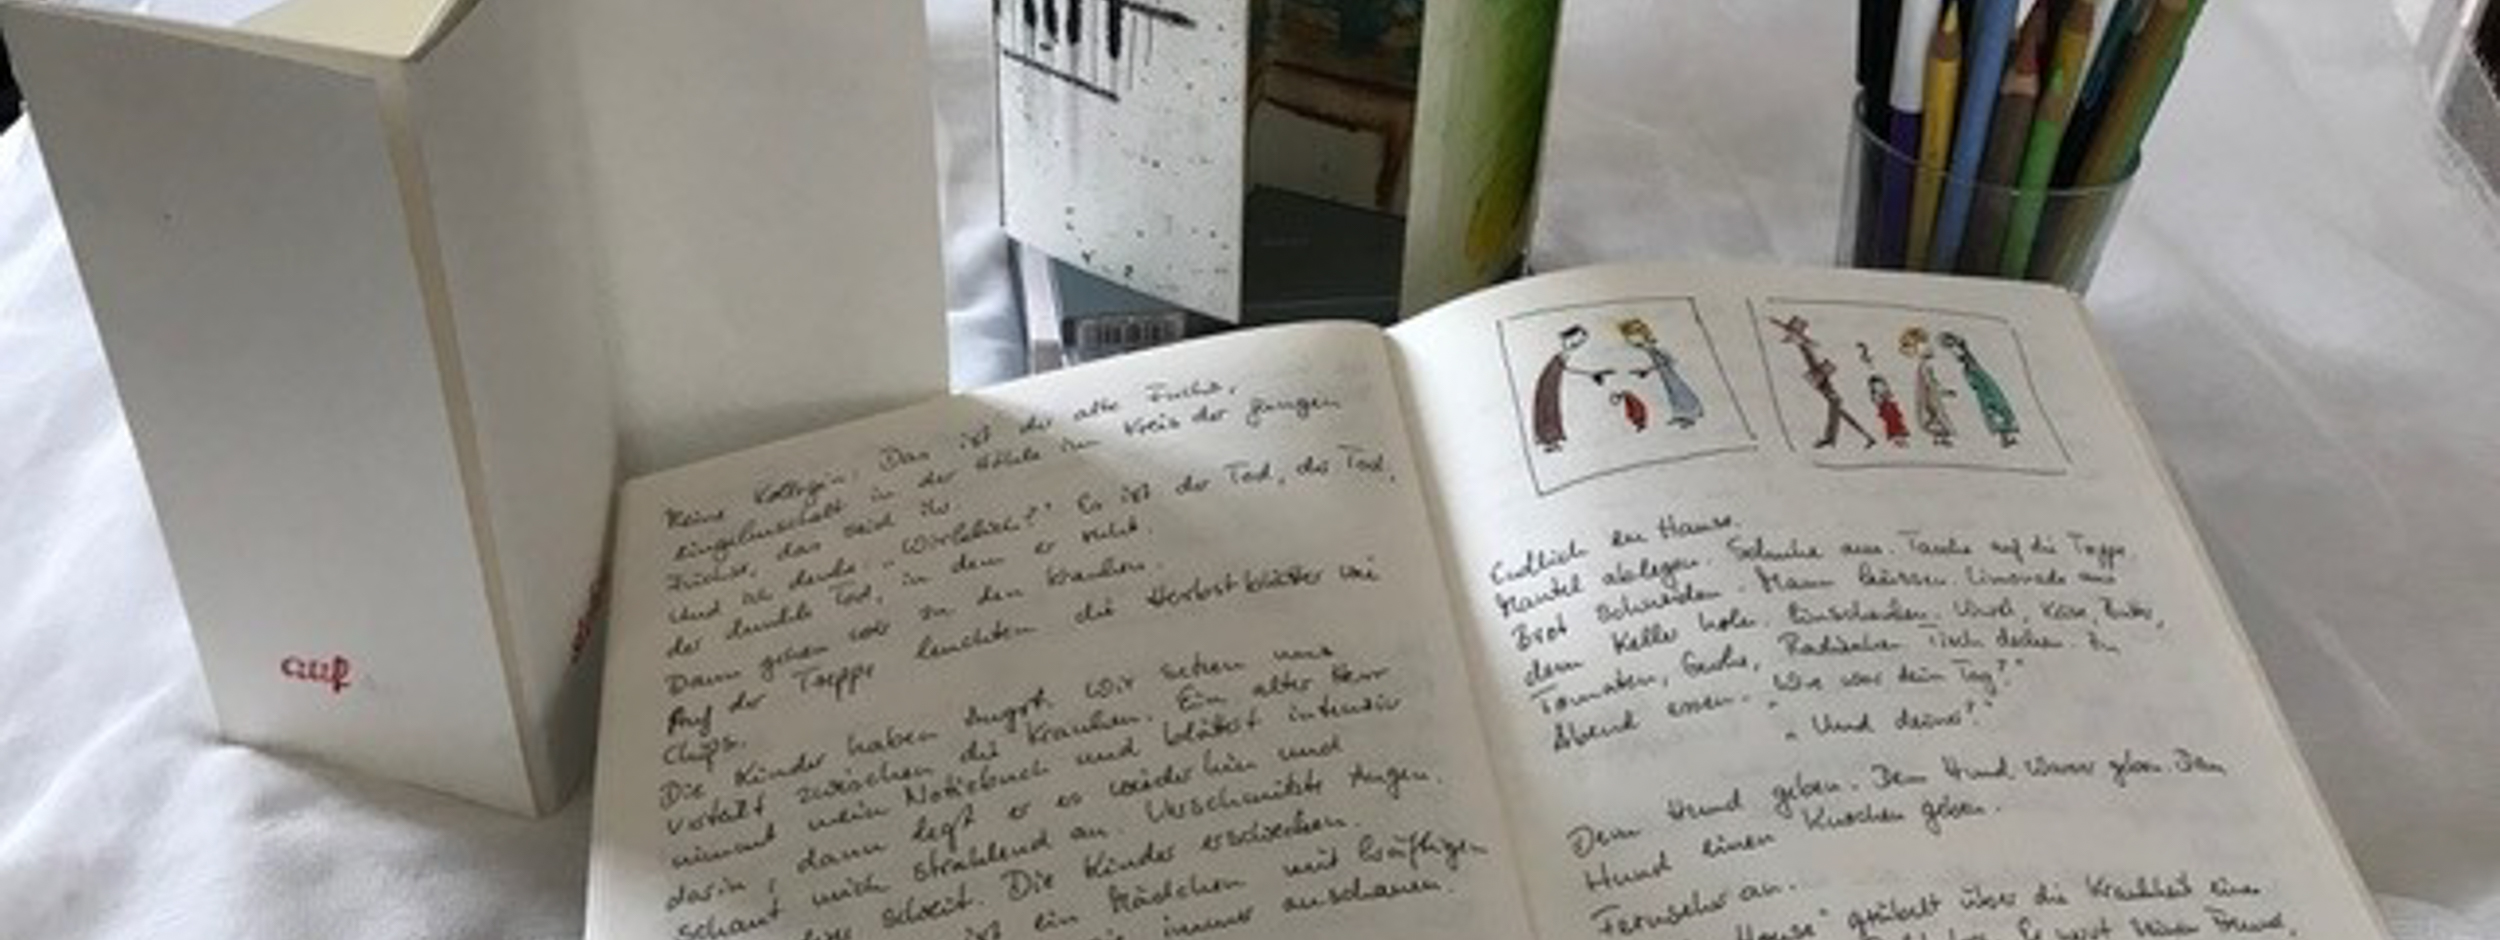 cup
Meine Kollegin: Das ist der alte Fuchs,
eingekuschelt in der Höhle im Kreis der jungen
Füchse, das seid ihr.
Und ich denke: "Wirklich?" Es ist der Tod, der Tod,
der dunkle Tod, in dem er ruht.
Dann gehen wir zu den Kranken.
Auf der Treppe leuchten die Herbstblätter wie
Chips.
Die Kinder haben Angst. Wir setzen uns
verteilt zwischen die Kranken. Ein alter Herr
nimmt mein Notizbuch und blättert intensiv
darin, dann legt er es wieder hin und
schaut mich strahlend an. Verschmitzte Augen.
schreit. Die Kinder erschrecken.
ist ein Mädchen mit kräftigen
immer anschauen.
?
Endlich zu Hause.
Mantel ablegen. Schuhe aus. Tasche auf die Treppe.
Brot schneiden. Mann küssen. Limonade aus
dem Keller holen. Einschenken. Wurst, Käse, Butter,
Tomaten, Gurke, Radieschen. Tisch decken. Zu
Abend essen. "Wie war dein Tag?"
"Und deiner?"
Dem Hund geben. Dem Hund Wasser geben. Dem
Hund einen Knochen geben.
Fernseher an.
House" grübelt über die Krankheit eines
Er nervt seinen Freund,